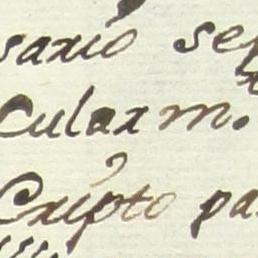 sario se
cular m.
Cripto pa